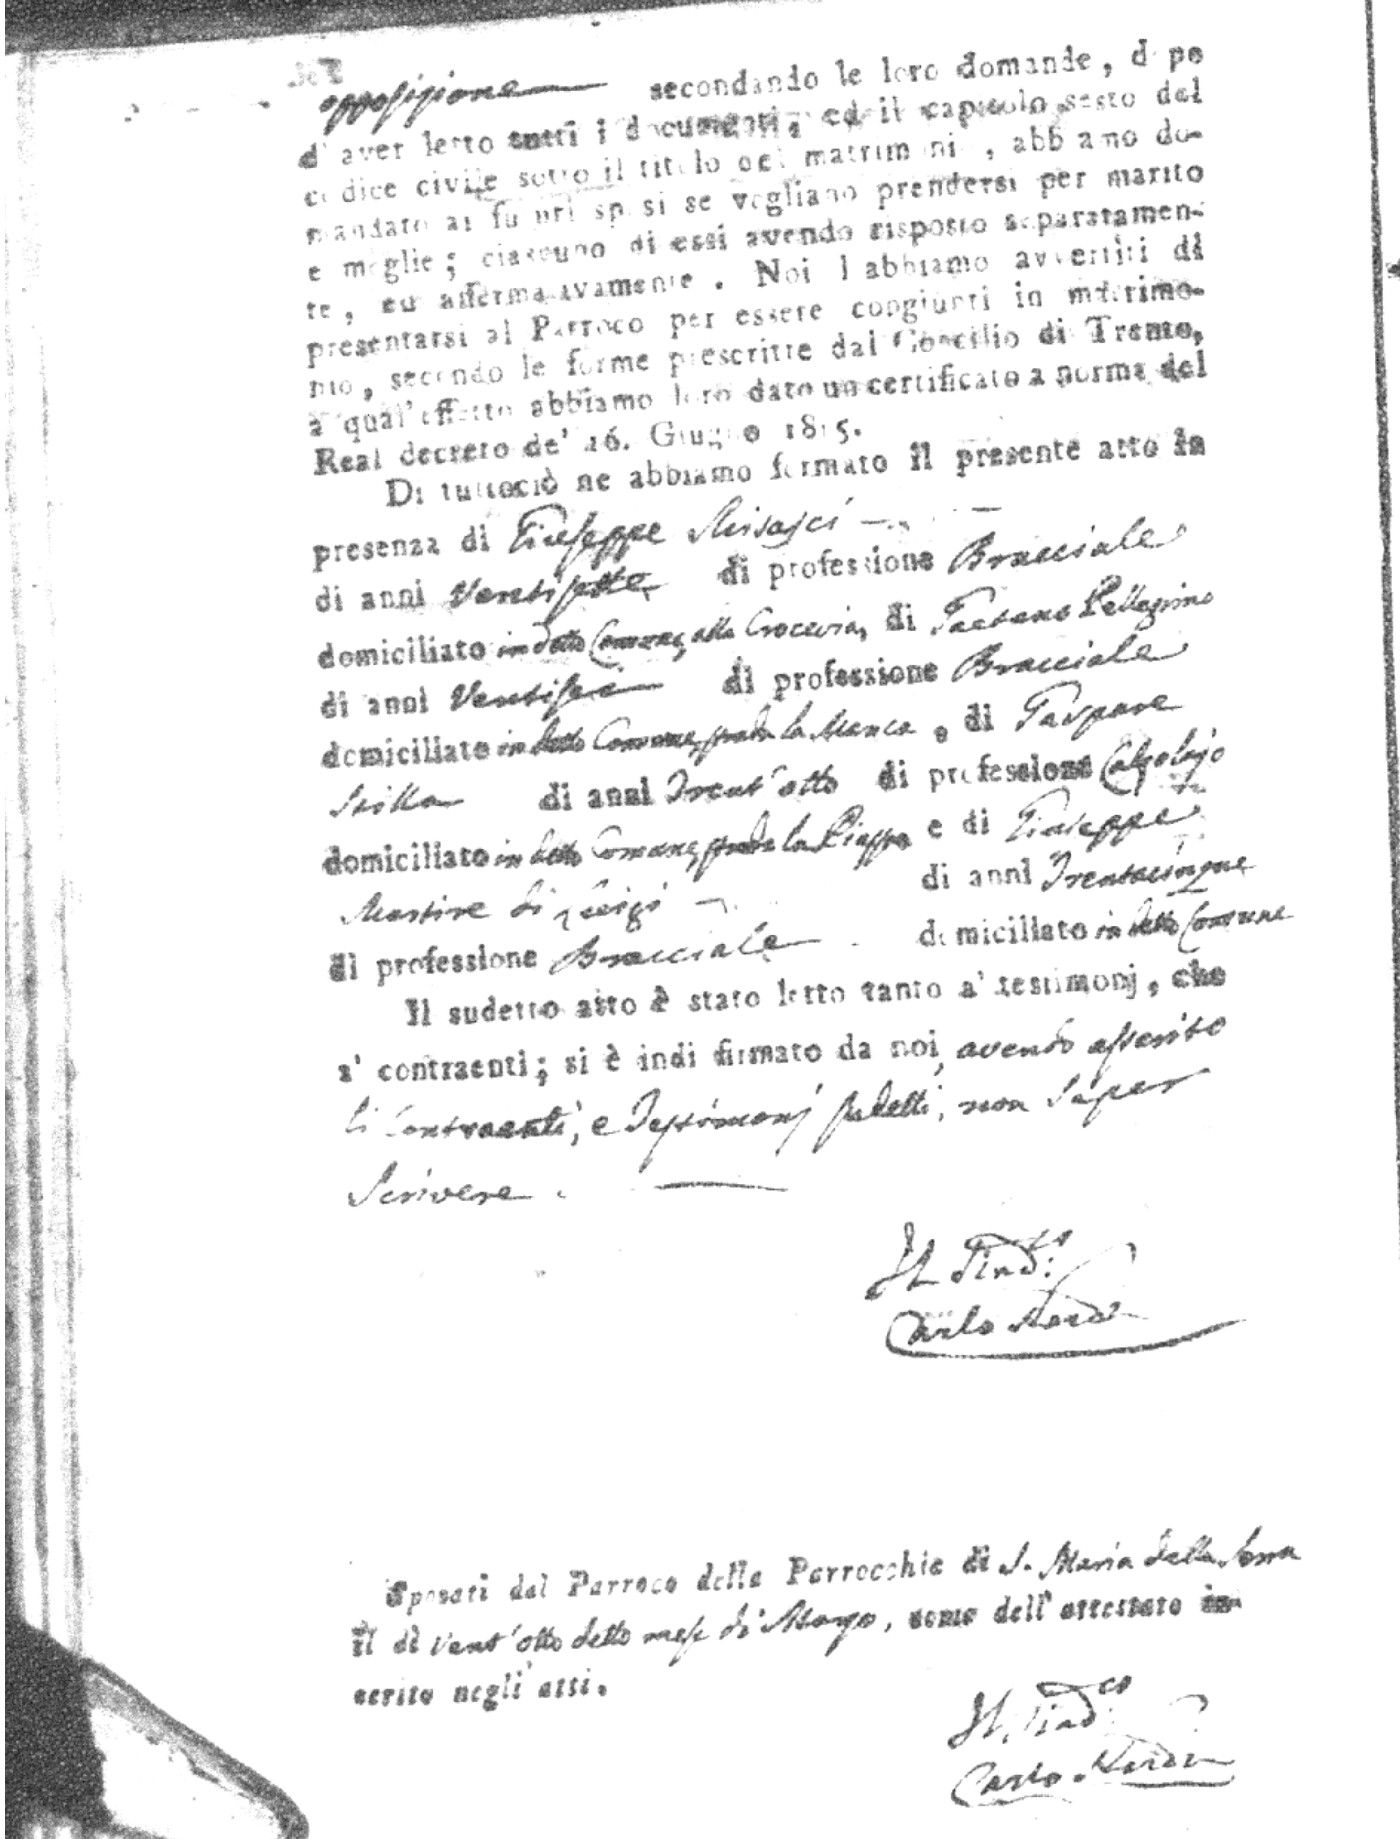 opposizione secondando le loro domande, dopo
d'aver letto tutti i documenti, ed il capitolo sesto del
codice civile sotto il titolo del matrimonio, abbiamo do-
mandato ai futuri sposi se vogliano prendersi per marito
e moglie; ciascuno di essi avendo risposto separatamen-
te, ed affermativamente. Noi l'abbiamo avvertiti di
presentarsi al Parroco per essere congiunti in matrimo-
nio, secondo le forme prescritte dal Concilio di Trento,
a qual'effetto abbiamo loro dato un certificato a norma del
Real decreto de' 16. Giugno 1815.
Di tuttociò ne abbiamo formato il presente atto in
presenza di Giuseppe
di anni Ventisette di professione Bracciale
domiciliato in detto Comune, alla Crocevia, di Gaetano Pellegrino
di anni Ventisei di professione Bracciale
domiciliato in detto Comune, strada la Manca, di Gaspare
Stilla di anni Trent'otto di professione Calzolajo
domiciliato in detto Comune, strada la Piazza e di Giuseppe
Martire di Luigi di anni Trentacinque
di professione Bracciale domiciliato in detto Comune
Il sudetto atto è stato letto tanto a' testimonj, che
a' contraenti; si è indi firmato da noi, avendo asserito
li Contraenti, e Testimonj sudetti, non saper
Scrivere.
Il Sind.co
Carlo Nardi
Sposati dal Parroco della Parrocchia di S. Maria della Serra
il di Vent'otto detto mese di Marzo, come dell'attestato in-
serito negli atti.
Il Sind.co
Carlo Nardi